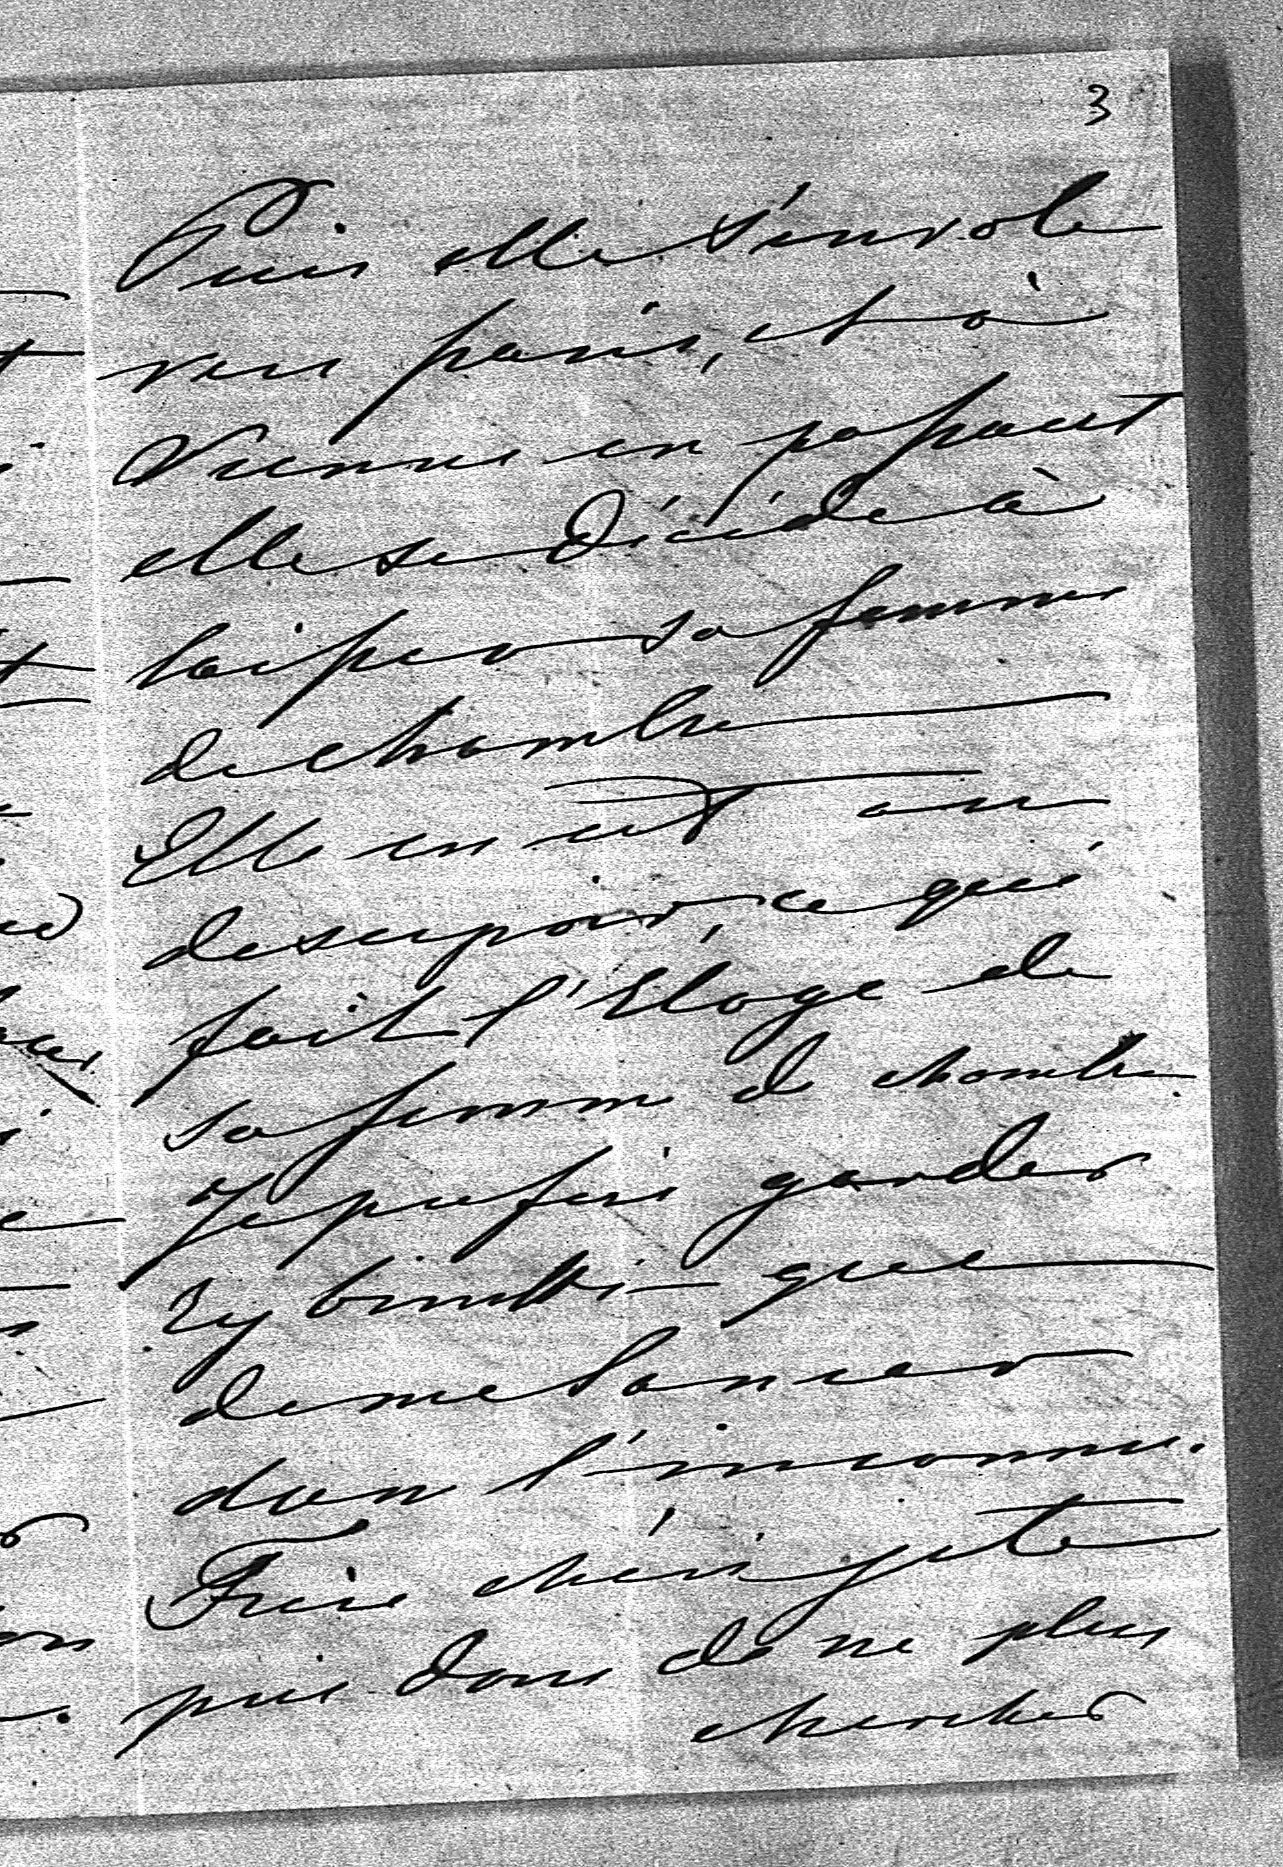 3
Puis elle s'envole
vers paris, et à
Vienne en passant
elle se décide à
laisser sa femme
de chambre
Elle en est au
desespoir, ce qui
fait l'Eloge de
sa femme de chambre.
Je prefere garder
que
de me lancer
dans l'inconnu.
Frère cheri je te
prie donc de ne plus
chercher